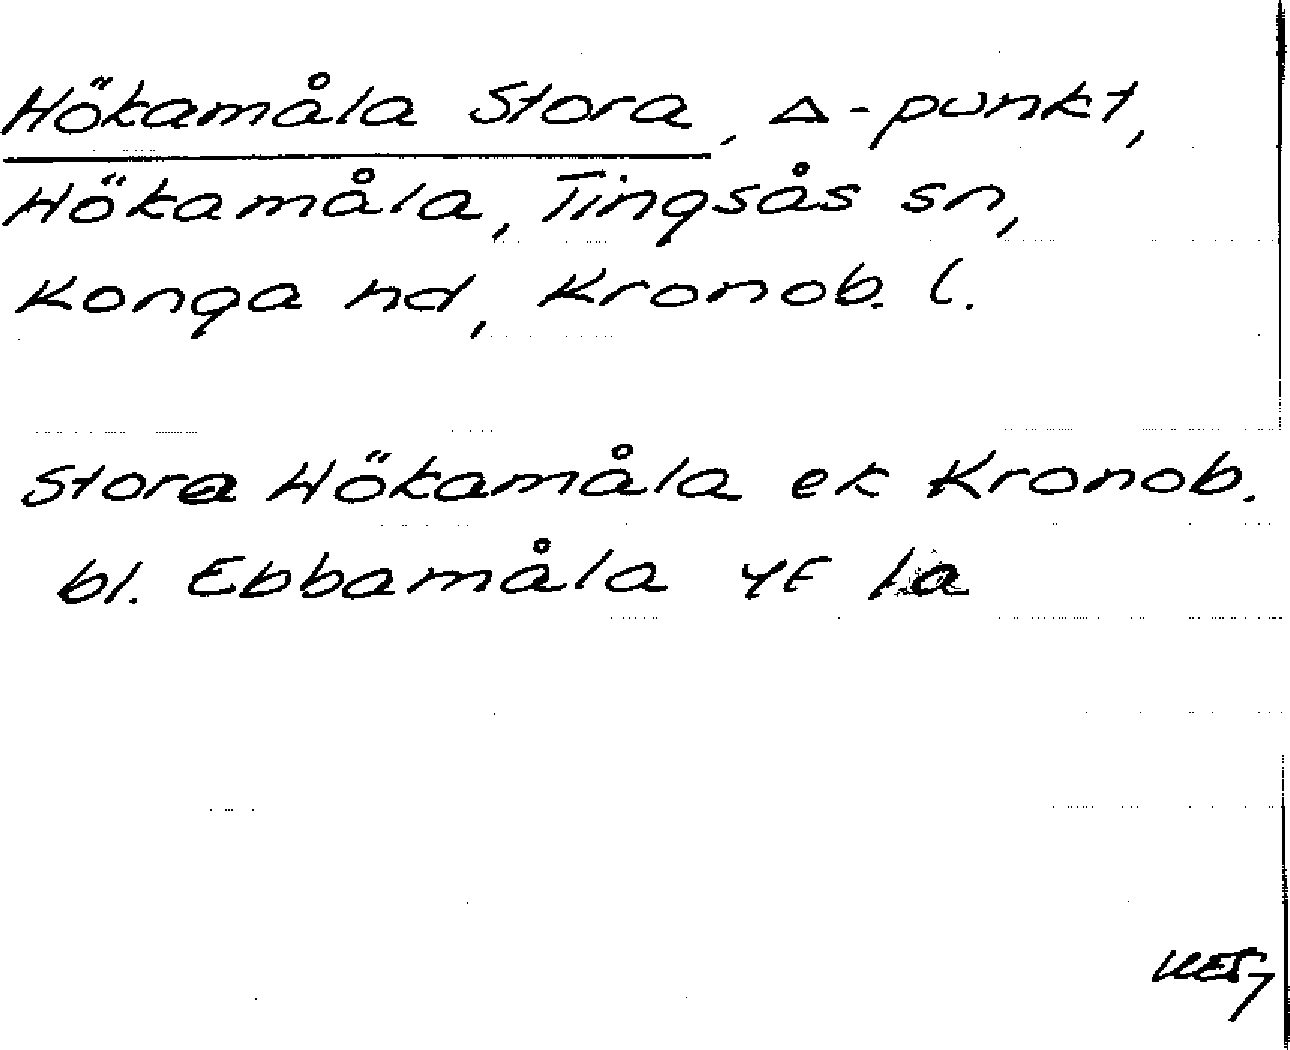 Hökamåla Stora, △-punkt,
Hökamåla, Tingsås sn,
Konga hd, Kronob. l.
Stora Hökamåla ek Kronob.
bl. Ebbamåla 4F 1a